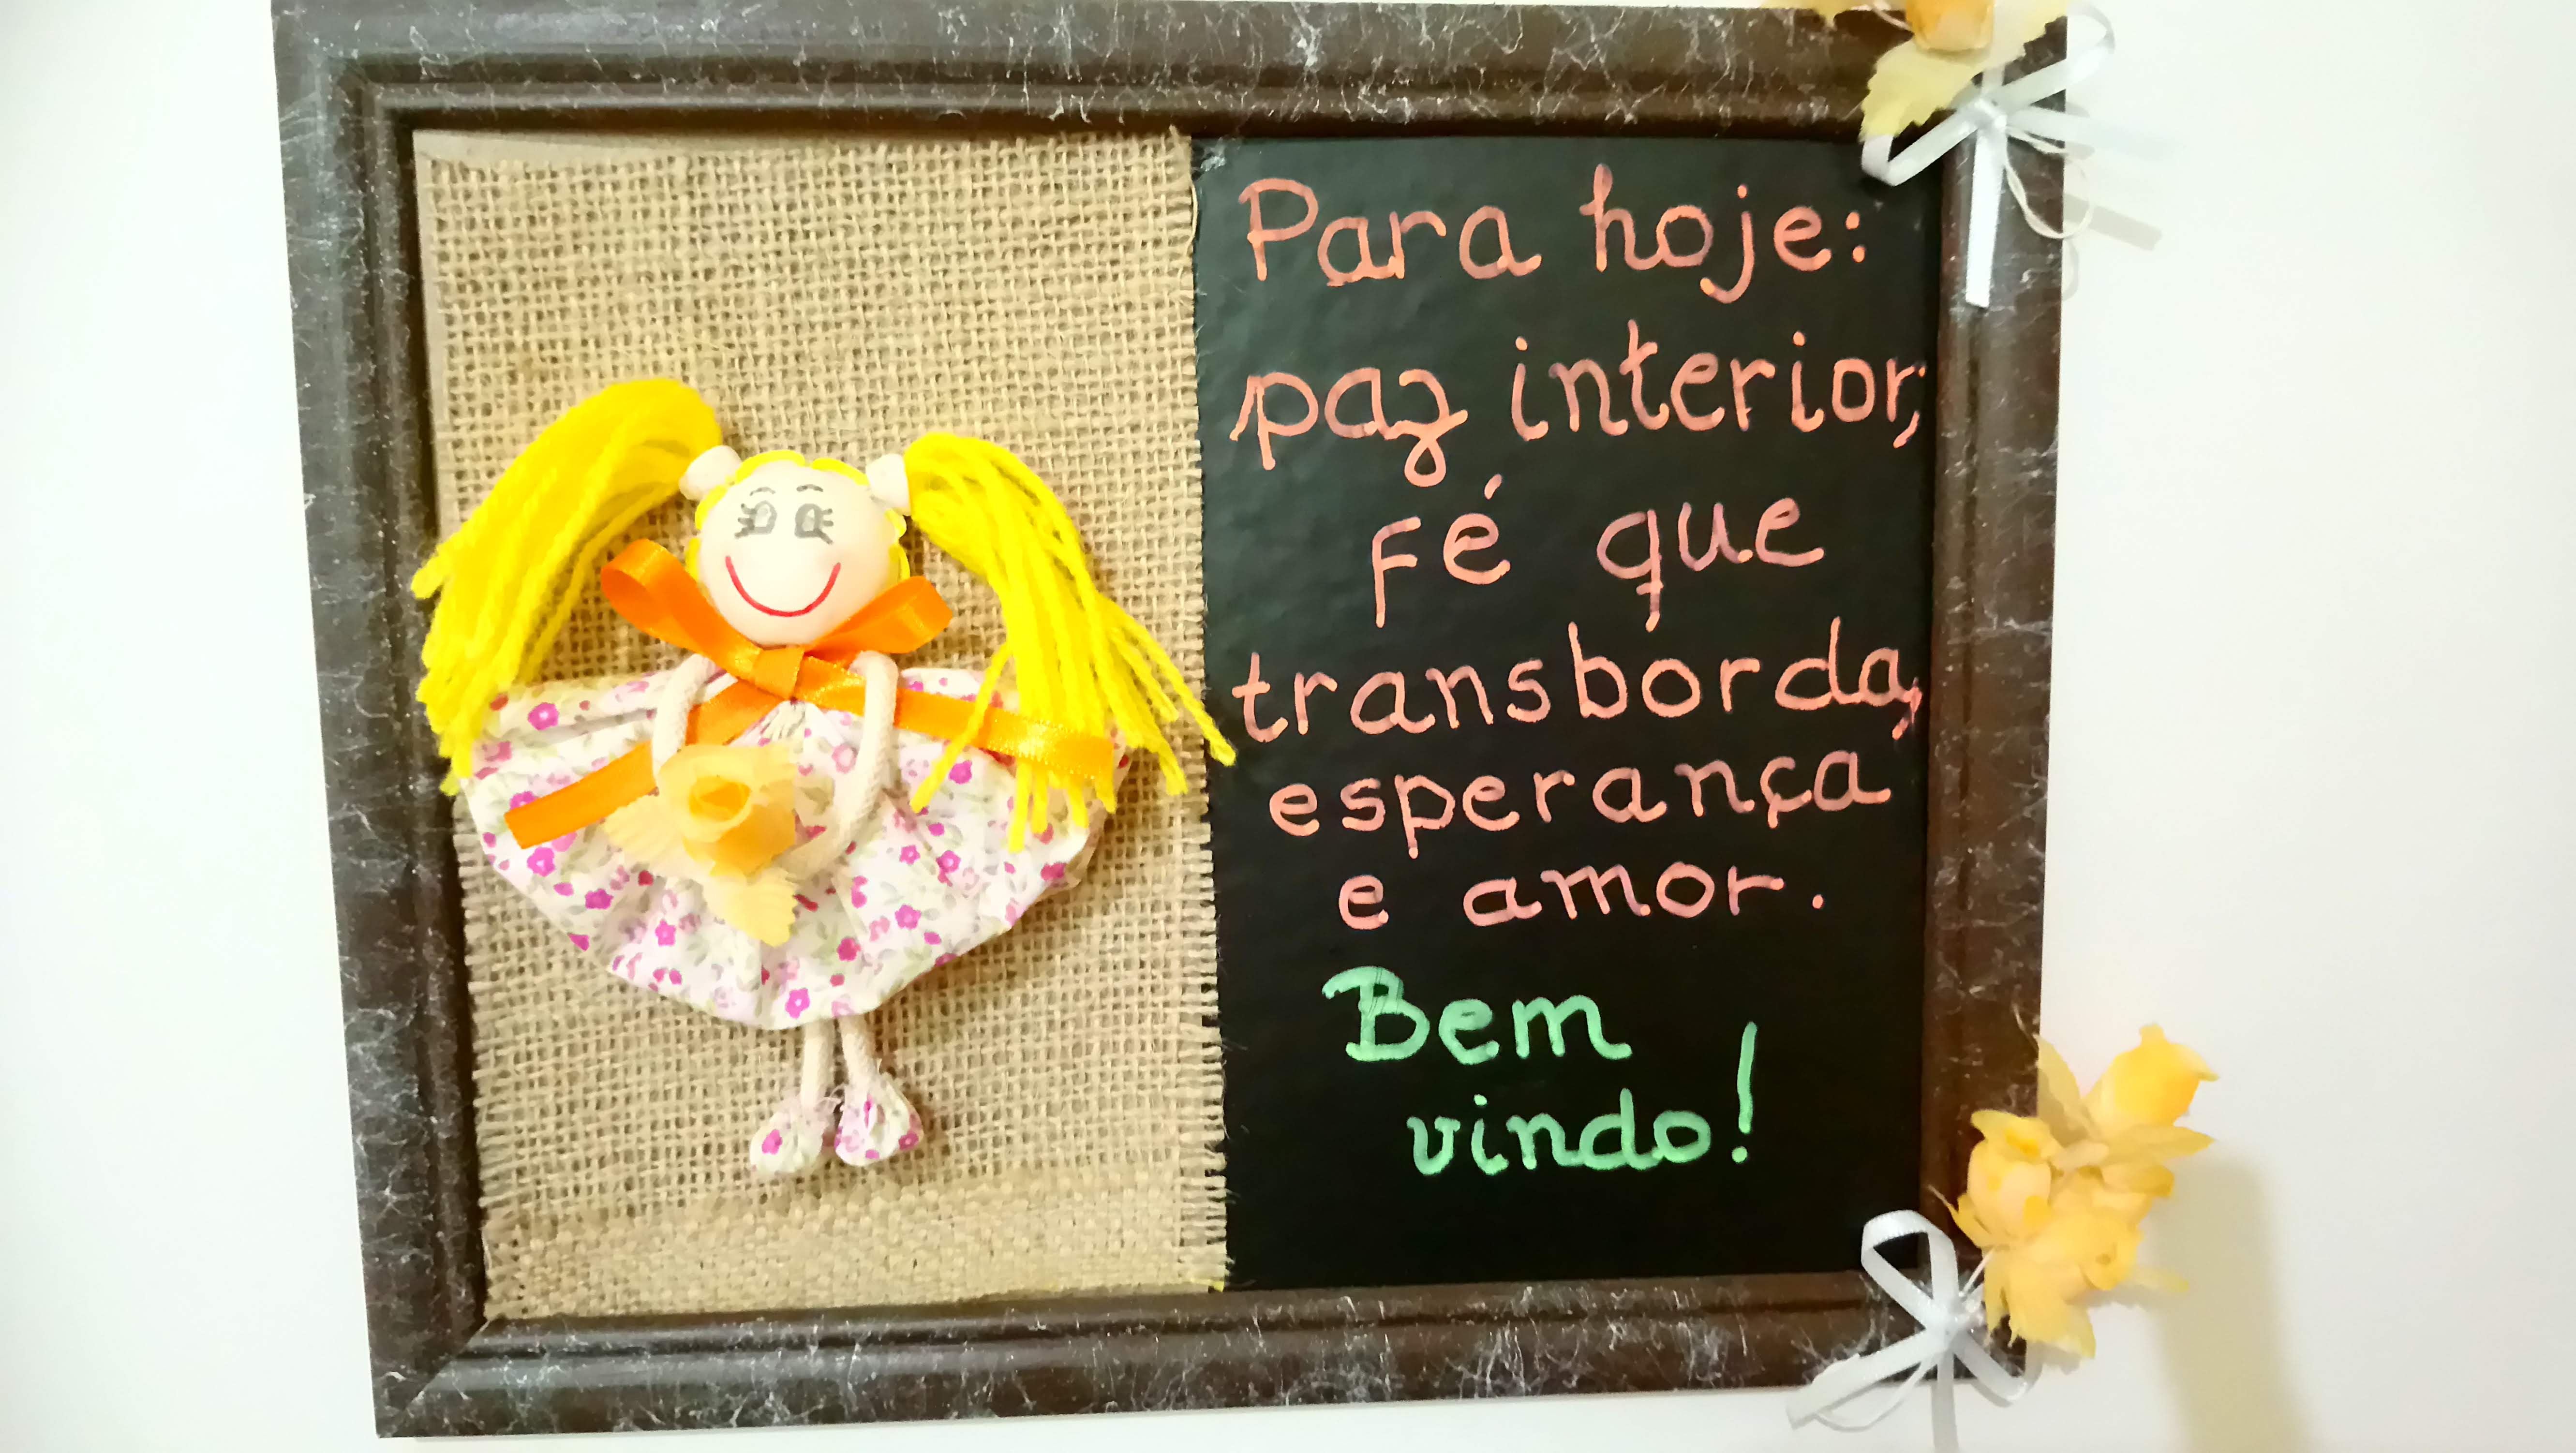 Para hoje:
paz interior,
Fé que
transborda,
esperança
e amor.
Bem
vindo!